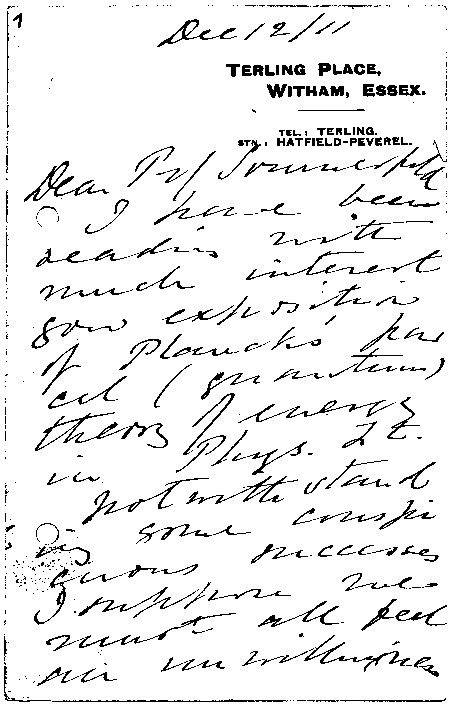 1
Dec 12/11
TERLING PLACE,
WITHAM, ESSEX.
TEL: TERLING.
STN: HATFIELD-PEVEREL.
Dear Prof Sommerfeld
I have been
reading with
much interest
your exposition
of Planck's par
cel (quantum)
theory of energy
in Phys. Zt.
Notwithstand
ing some conspi
cuous successes
I suppose we
must all feel
an unwillingness